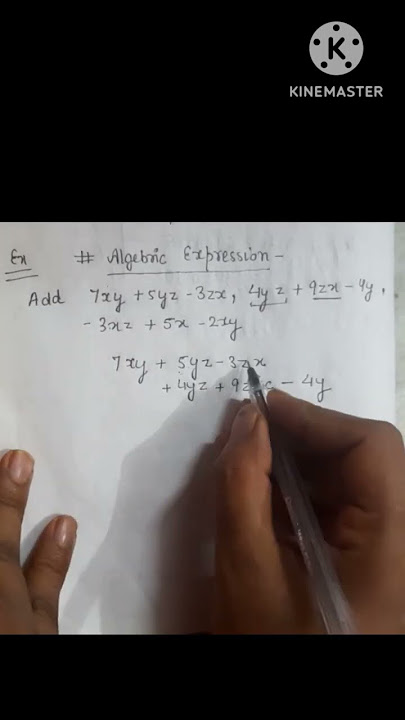 KINEMASTER
Ex # Algebric Expression -
Add 7xy + 5yz - 3zx, 4yz + 9zx - 4y,
- 3xz + 5x - 2xy
7xy + 5yz - 3zx
+ 4yz + 9zx - 4y